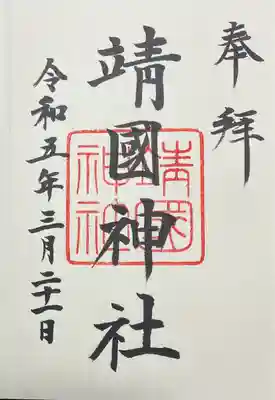 奉拝
靖國神社
靖國神社
令和五年三月二十一日